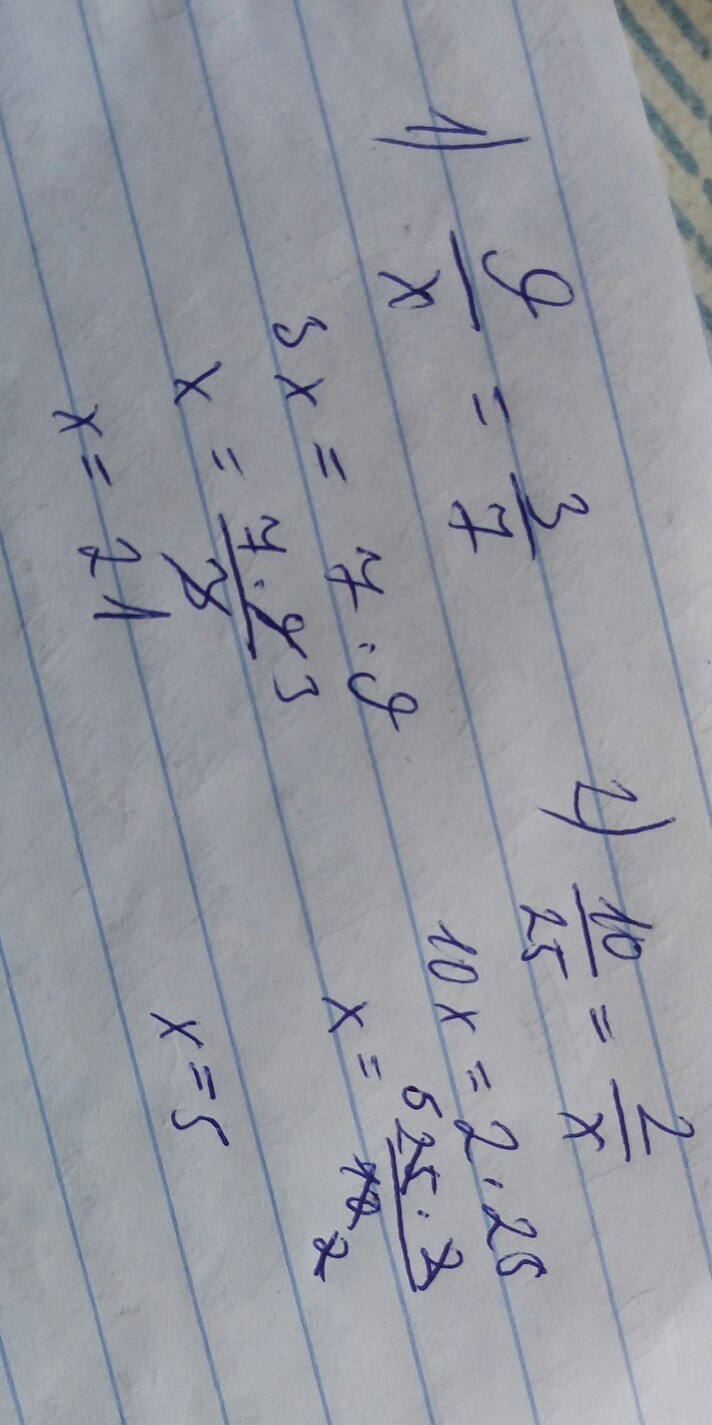 1) 9/x = 3/7
3x = 7 · 9
x = 7 · 9 3 / 3
x = 21
2) 10/25 = 2/x
10x = 2 · 25
x = 5 25 · 2 / 10 2
x = 5